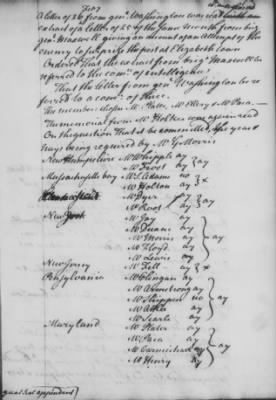 A letter of 26 from genl Washington was read with an
extract of a letter of 25 of the same month from brigr
genl Maxwell giving an account of an attempt of the
enemy to surprize the post at Elizabeth town
Ordered That the extract from brigr Maxwell be
referred to the comee of intelligence
That the letter from genl Washington be re
ferred to a comee of three
The members chosen Mr Plater, Mr Ellery & Mr Paca
The memorial from Mr Holker was again read
On the question that it be committed, the yeas &
nays being required by Mr G Morris
New Hampshire Mr Whipple ay } ay
Mr Frost ay
Massachusetts bay Mr S. Adams no } x
Mr Holton ay
Connecticut Mr Dyer ay } ay
Mr Root ay
New York Mr Jay ay
Mr Duane ay
Mr Morris ay } ay
Mr Floyd ay
Mr Lewis ay
New Jersey Mr Fell ay } x
Pensylvania Mr Clingan ay
Mr Armstrong ay
Mr Shippen no } ay
Mr Atlee ay
Mr Searle ay
Maryland Mr Plater ay
Mr Paca ay
Mr Carmichael ay } ay
Mr Henry ay